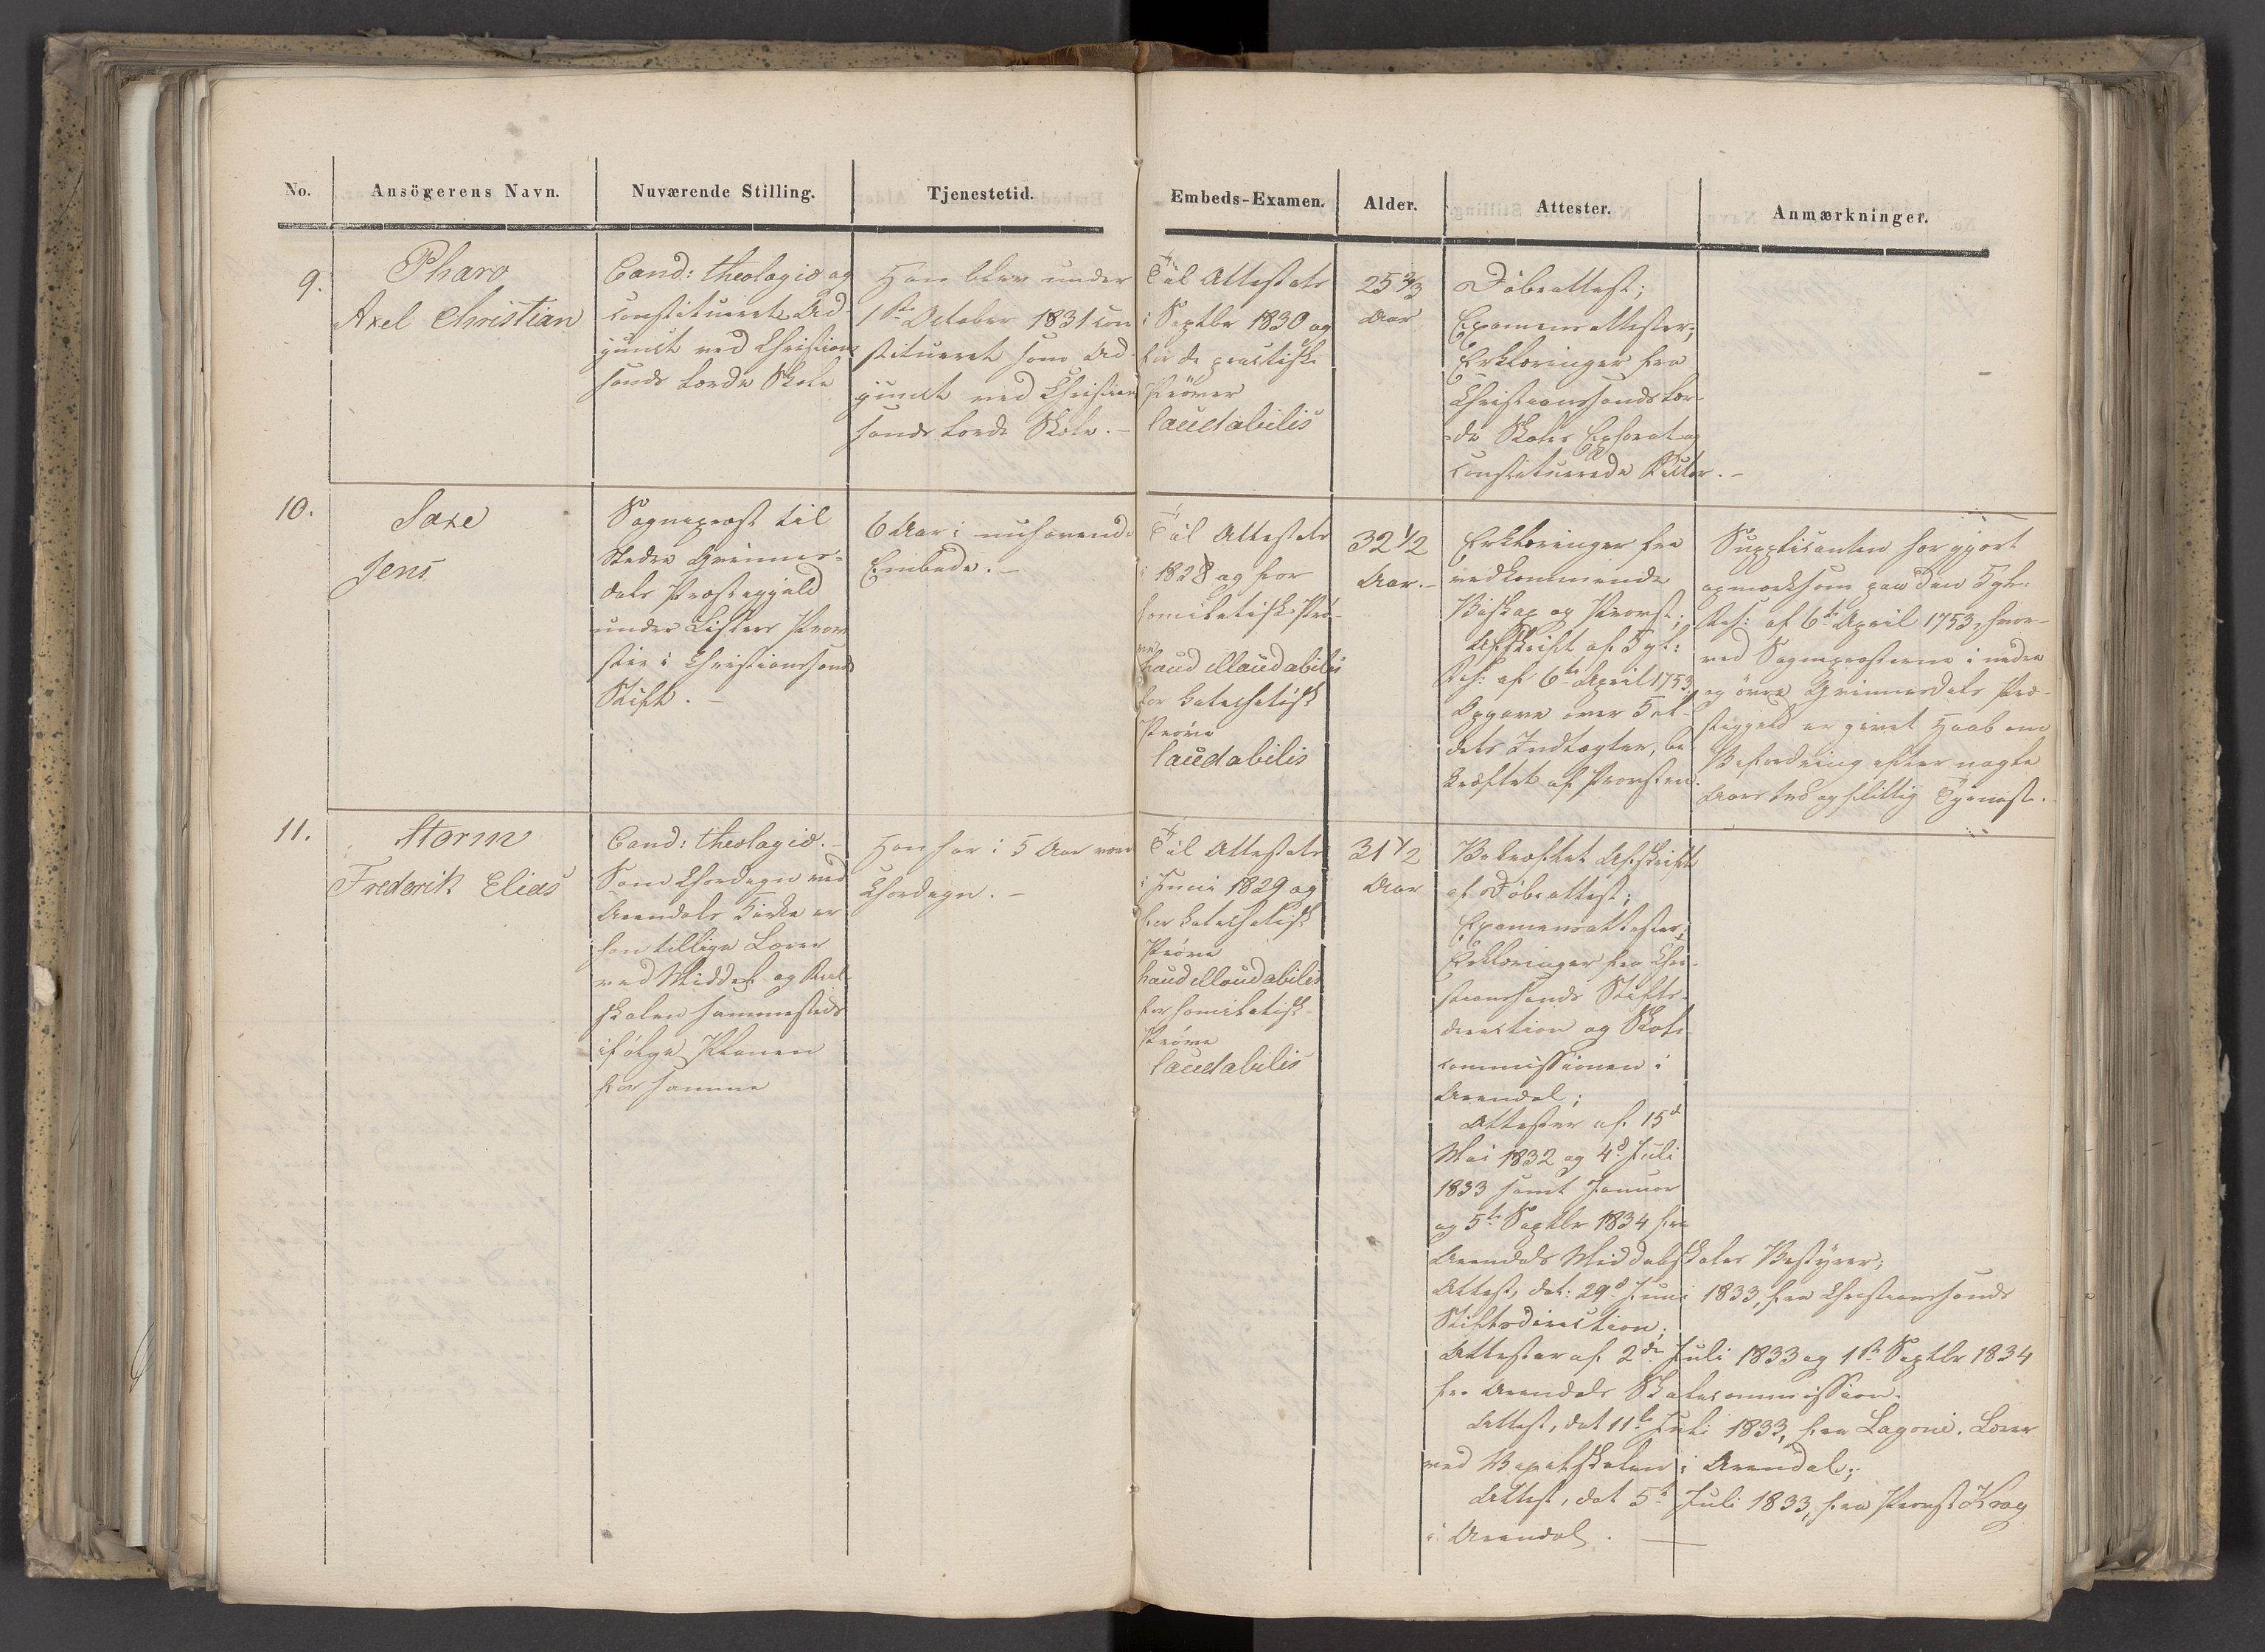 No.
Ansögerens Navn.
Nuværende Stilling.
Tjenestetid.
Embeds-Examen.
Alder.
Attester.
Anmærkninger.
9.
Pharo
Axel Christian
Cand: theologiæ og
constitueret Ad-
junct ved Christian
sands lærde Skole
Han blev under
1ste October 1831 con
stitueret som Ad-
junct ved Christian
sands lærde Skole. –
Til Attestats
i Septbr 1830 og
for de practiske
Prøver
laudabilis
25 2/3
Aar
Døbeattest;
Examensattester;
Erklæringer fra
Christianssands lær-
de Skoles Ephorat og
constituerede Rector. –
10.
Saxe
Jens
Sognepræst til
Nedre Qvinnes-
dals Præstegjeld
under Listers Prov
stie i Christianssands
Stift. –
6 Aar i nuhavende
Embede. –
Til Attestats
i 1828 og for
homiletisk Prø-
ve
haud illaudabilis
for katechetisk
Prøve
laudabilis
32 1/2
Aar. –
Erklæringer fra
vedkommende
Biskop og Provst;
Afskrift af Kgl:
Res: af 6te April 1753,
Opgave over Kal-
dets Indtægter, be
kræftet af Provsten.
Supplicanten har gjort
opmærksom paa den Kgl:
Res: af 6te April 1753, hvor-
ved Sognepræsterne i nedre
og övre Qvinnesdals Præ-
stegjeld er givet Haab om
Befordring efter nogle
Aars tro og flittig Tjeneste.
11.
Storm
Frederik Elias
Cand: theologiæ. –
Som Chordegn ved
Arendals Kirke er
han tillige Lærer
ved Middel- og Real-
skolen sammesteds
ifölge Planen
for samme
Han har i 5 Aar været
Chordegn. –
Til Attestats
i Juni 1829 og
for katechetisk
Prøve
haud illaudabilis
for homiletisk
Prøve
laudabilis
31 1/2
Aar
Bekræftet Afskrift
af Döbeattest;
Examensattester;
Erklæringer fra Chri-
stianssands Stifts-
direction og Skole-
commissionen i
Arendal;
Attester af 15d
Mai 1832 og 4d Juli
1833 samt Januar
og 5te Septbr 1834 fra
Arendals Middelskoles Bestyrer;
Attest, dat: 29d Juni 1833, fra Christianssands
Stiftsdirection;
Attester af 2den Juli 1833 og 1ste Septbr 1834
fra Arendals Skolecommission.
Attest, dat 11te Juli 1833, fra Lagoni, Lærer
ved Borgerskolen i Arendal;
Attest, dat 5te Juli 1833, fra Provst Krog
i Arendal. –